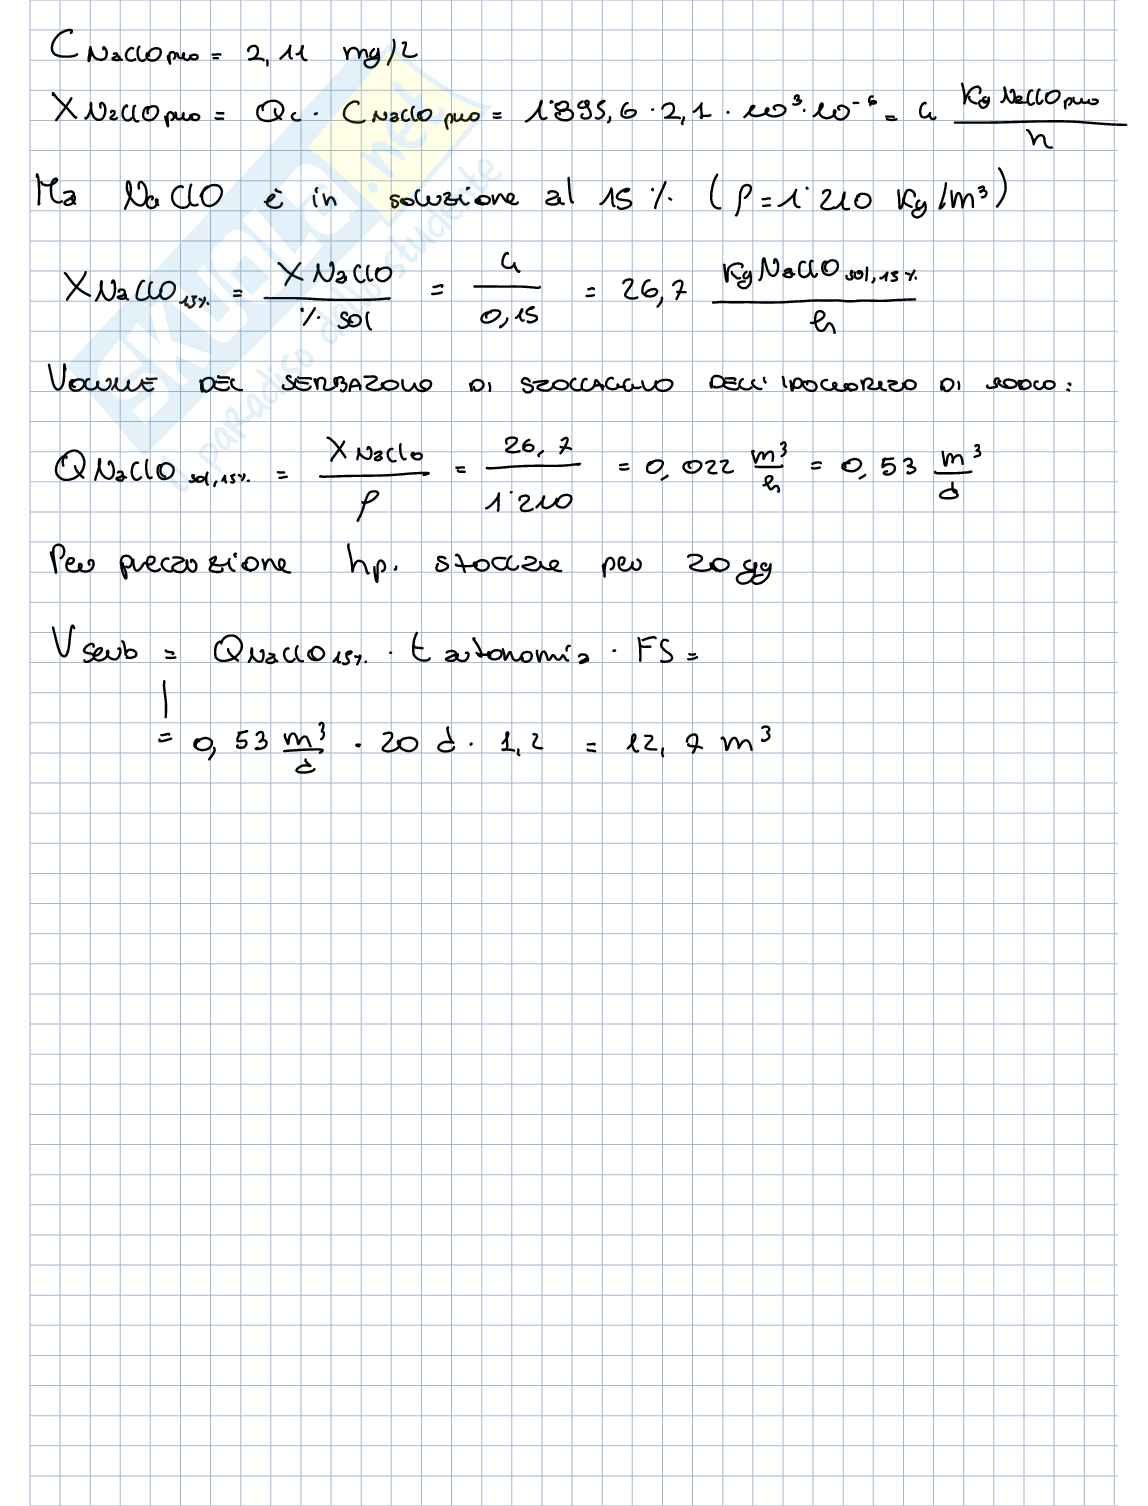 C NaClO puro = 2,11 mg/l
X NaClO puro = Qc · C NaClO puro = 1'895,6 · 2,1 · 10³ · 10⁻⁶ = 4 Kg NaClO puro / h
Ma NaClO è in soluzione al 15 % (ρ = 1'210 Kg/m³)
X NaClO 15% = X NaClO / % sol = 4 / 0,15 = 26,7 Kg NaClO sol,15% / h
VOLUME DEL SERBATOIO DI STOCCAGGIO DELL'IPOCLORITO DI SODIO:
Q NaClO sol,15% = X NaClO / ρ = 26,7 / 1'210 = 0,022 m³/h = 0,53 m³/d
Per precauzione hp. stoccare per 20 gg
V serb = Q NaClO 15% · t autonomia · FS =
= 0,53 m³/d · 20 d · 1,2 = 12,7 m³
SKUOLA.net
paradiso dello studente